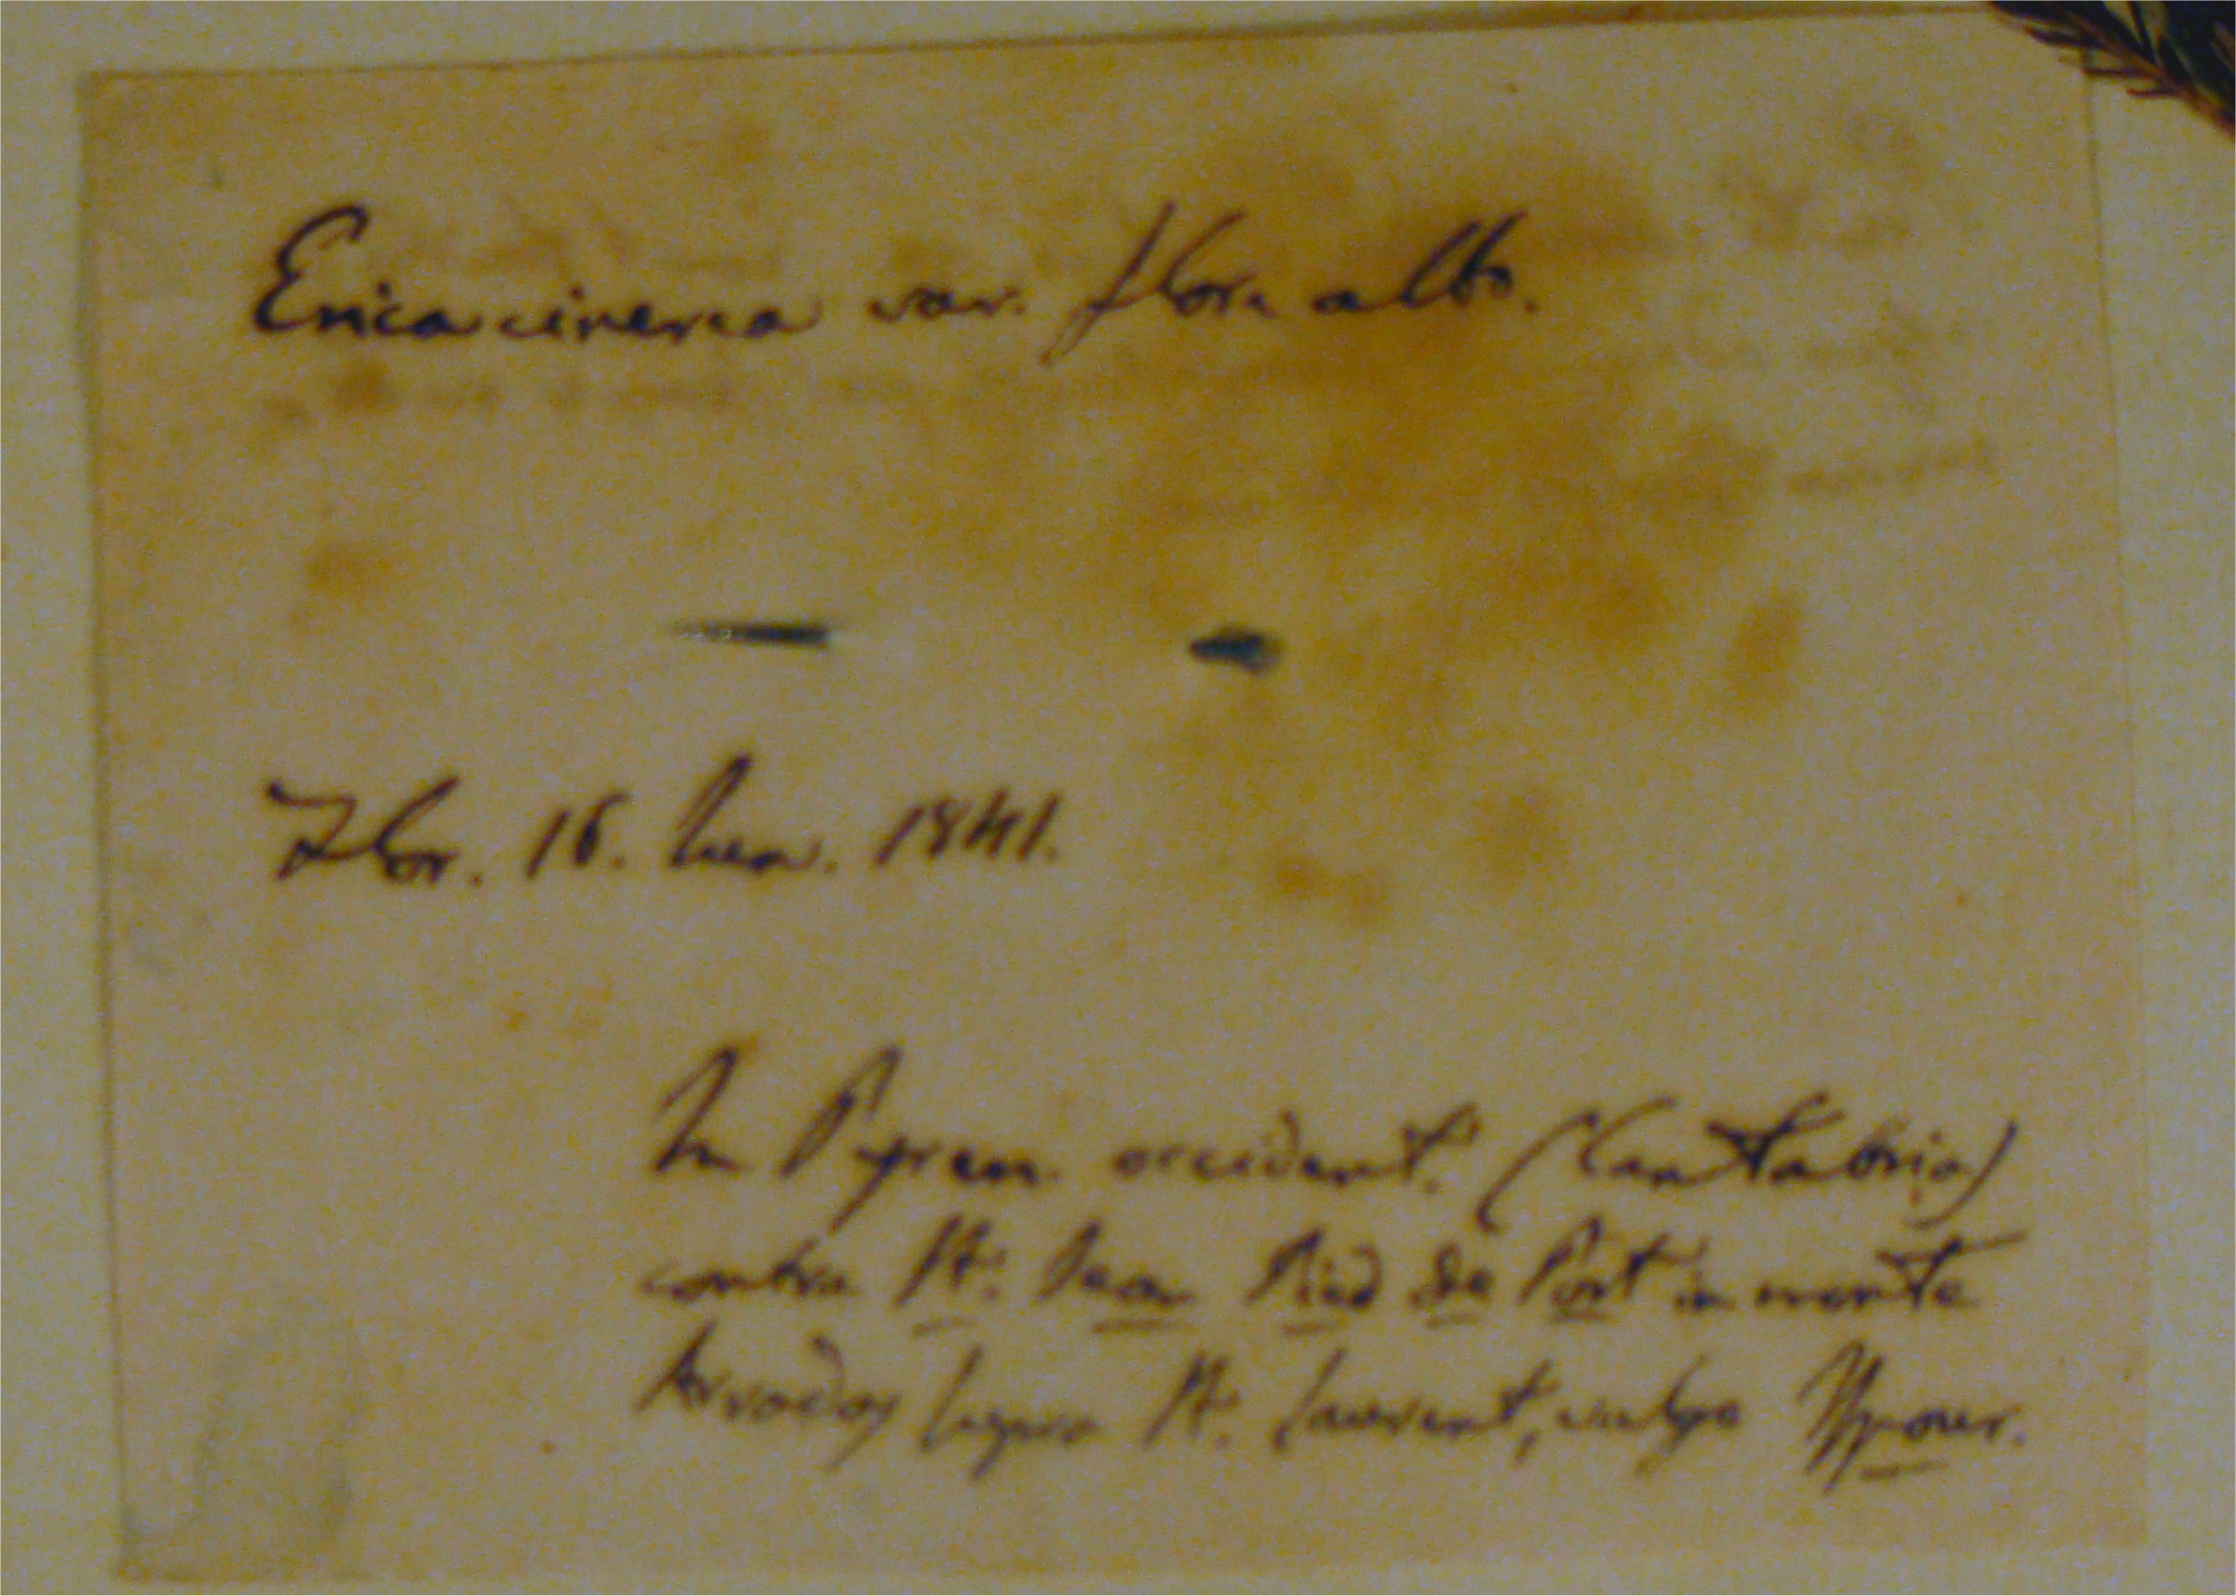 Erica cinerea var. flore albo.
Flor. 16. Jun. 1841.
In Pyren. occident. (Cantabria)
contra St. Jean Pied de Port in monte
supra St. Laurent, vulgo